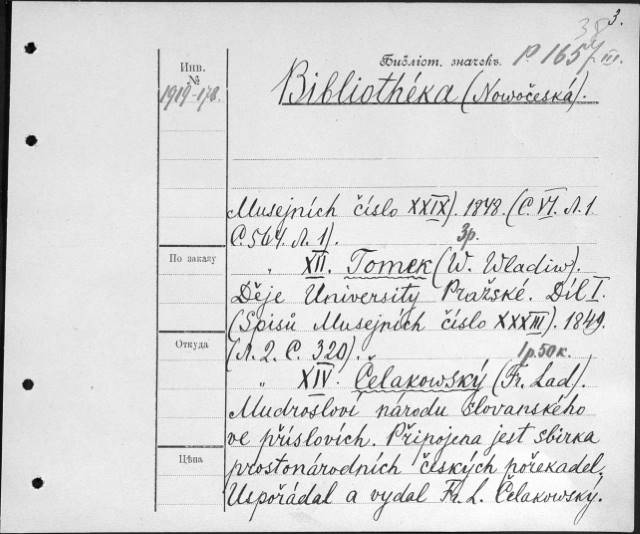 3.
38
Библіот. значекъ. P. 165/III.
Инв.
№
1919-178.
Bibliothéka (Nowočeská).
Musejních číslo XXIX). 1848. (C. VI. Л. 1
C. 564. Л. 1). 3p.
" XII. Tomek (W. Wladiw).
По заказу
Děje University Pražské. Díl I.
(Spisů Musejních číslo XXXIII). 1849.
Откуда
(Л. 2. C. 320). 1p. 50к.
" XIV. Čelakowský (Fr. Lad).
Mudrosloví národu slovanského
ve příslovích. Připojena jest sbírka
Цѣна
prostonárodních českých pořekadel.
Uspořádal a vydal Fr. L. Čelakowský.